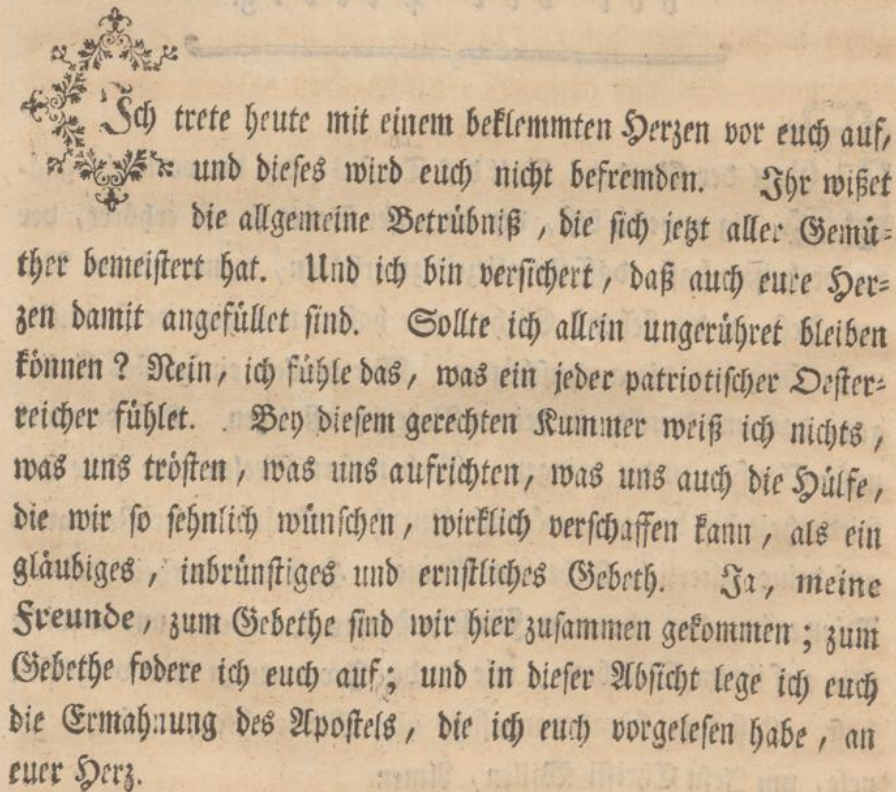 Ich trete heute mit einem beklemmten Herzen vor euch auf,
und dieses wird euch nicht befremden. Ihr wißet
die allgemeine Betrübniß, die sich jetzt aller Gemü-
ther bemeistert hat. Und ich bin versichert, daß auch eure Her-
zen damit angefüllet sind. Sollte ich allein ungerühret bleiben
können? Nein, ich fühle das, was ein jeder patriotischer Oester-
reicher fühlet. Bey diesem gerechten Kummer weiß ich nichts,
was uns trösten, was uns aufrichten, was uns auch die Hülfe,
die wir so sehnlich wünschen, wirklich verschaffen kann, als ein
gläubiges, inbrünstiges und ernstliches Gebeth. Ja, meine
Freunde, zum Gebethe sind wir hier zusammen gekommen; zum
Gebethe fodere ich euch auf; und in dieser Absicht lege ich euch
die Ermahnung des Apostels, die ich euch vorgelesen habe, an
euer Herz.